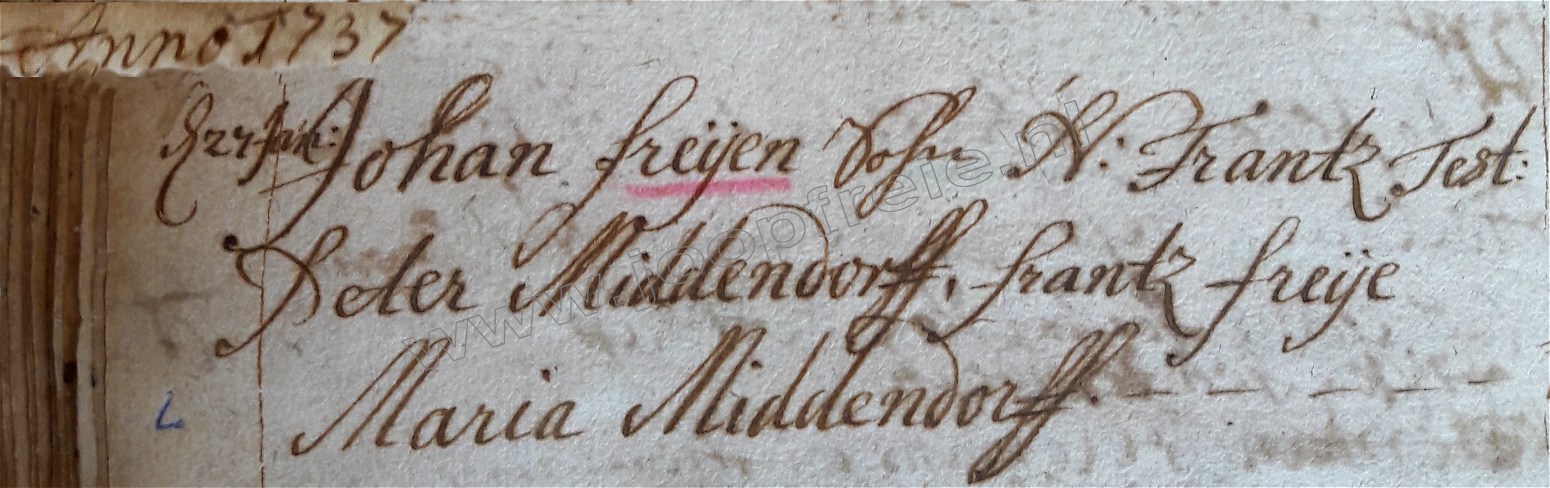 Anno 1737
Johan freijen Sohn N: Frantz Test:
Peter Middendorff, frantz freije
Maria Middendorff.
www.joopfreie.nl